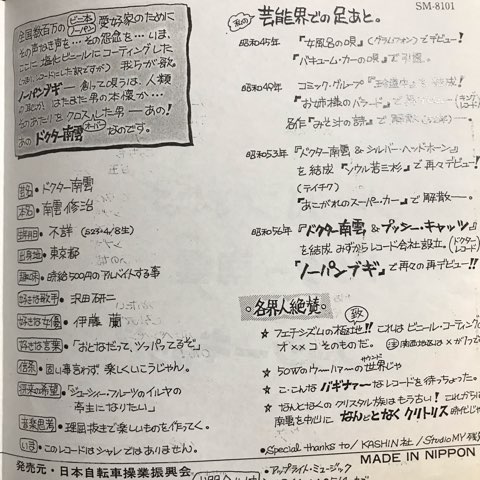 SM-8101
全国数百万の ビニ本 ノーパン 愛好家のために
その声なき声を…その怨念を…いま、
ここに塩化ビニールにコーティングした
我らが歌
ノーパンブギ── 創って唄うは、人類
はたまた男の本懐か…
そのあたりをクロスした男──あの!
あの ドクター南雲 オーバー なのです。
芸名・ドクター南雲
本名・南雲修治
・不詳(S23・4/8生)
出身地・東京都
趣味・時給500円のアルバイトする事
好きな歌手・沢田研二
好きな女優・伊藤 蘭
好きな言葉・「おとなだって、ツッパってるぞ」
信条・固い事言わず 楽しくいこうじゃん。
将来の希望・「ジューシィーフルーツのイルヤの
亭主になりたい」
音楽思考・理屈抜きで楽しいものを作ってく。
・このレコードはシャレではありません。
発売元・日本自転車操業振興会
芸能界での足あと。
昭和45年 『女風呂の唄』(グラムフォン)でデビュー!
『バキューム・カーの唄』で引退。
昭和49年 コミック・グループ
『お姉様のバラード』
名作『みそ汁の詩』で
昭和53年 『ドクター南雲&シルバー・ヘッドホーン』
を結成『ソウル若三杉』で再々デビュー!
(テイチク)
『あこがれのスーパーカー』で解散──。
昭和56年 『ドクター南雲&プッシー・キャッツ』
を結成みずからレコード会社設立。(ドクターレコード)
『ノーパンブギ』で再々の再デビュー!!
・各界人絶賛・
☆ フェチシズムの極致!! これはビニール・コーティングの
オ××コそのものだ。
☆ 50Wのウーハァーの世界じゃ サウンド
☆ こ・こんなバギナァーなレコードを待っちょった。
☆ なんとなくのクリスタル族はもう古い! これからは
南雲を中心に なんとなくクリトリス
・Special thanks to/KASHIN社/Studio MY
MADE IN NIPPON
・アップライト・ミュージック